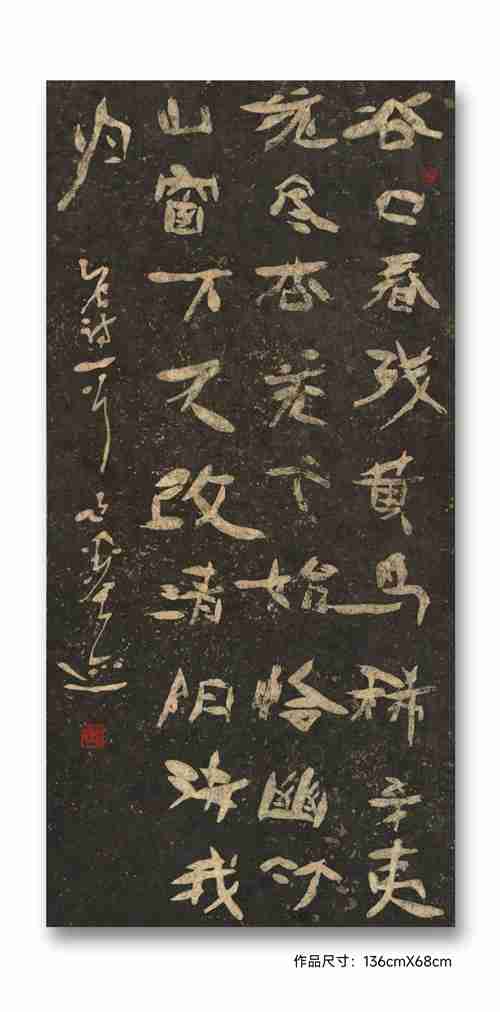 谷口春残黄鸟稀辛夷
花尽杏花飞始怜幽竹
山窗下不改清阴待我
归
诗一首
作品尺寸：136cmX68cm